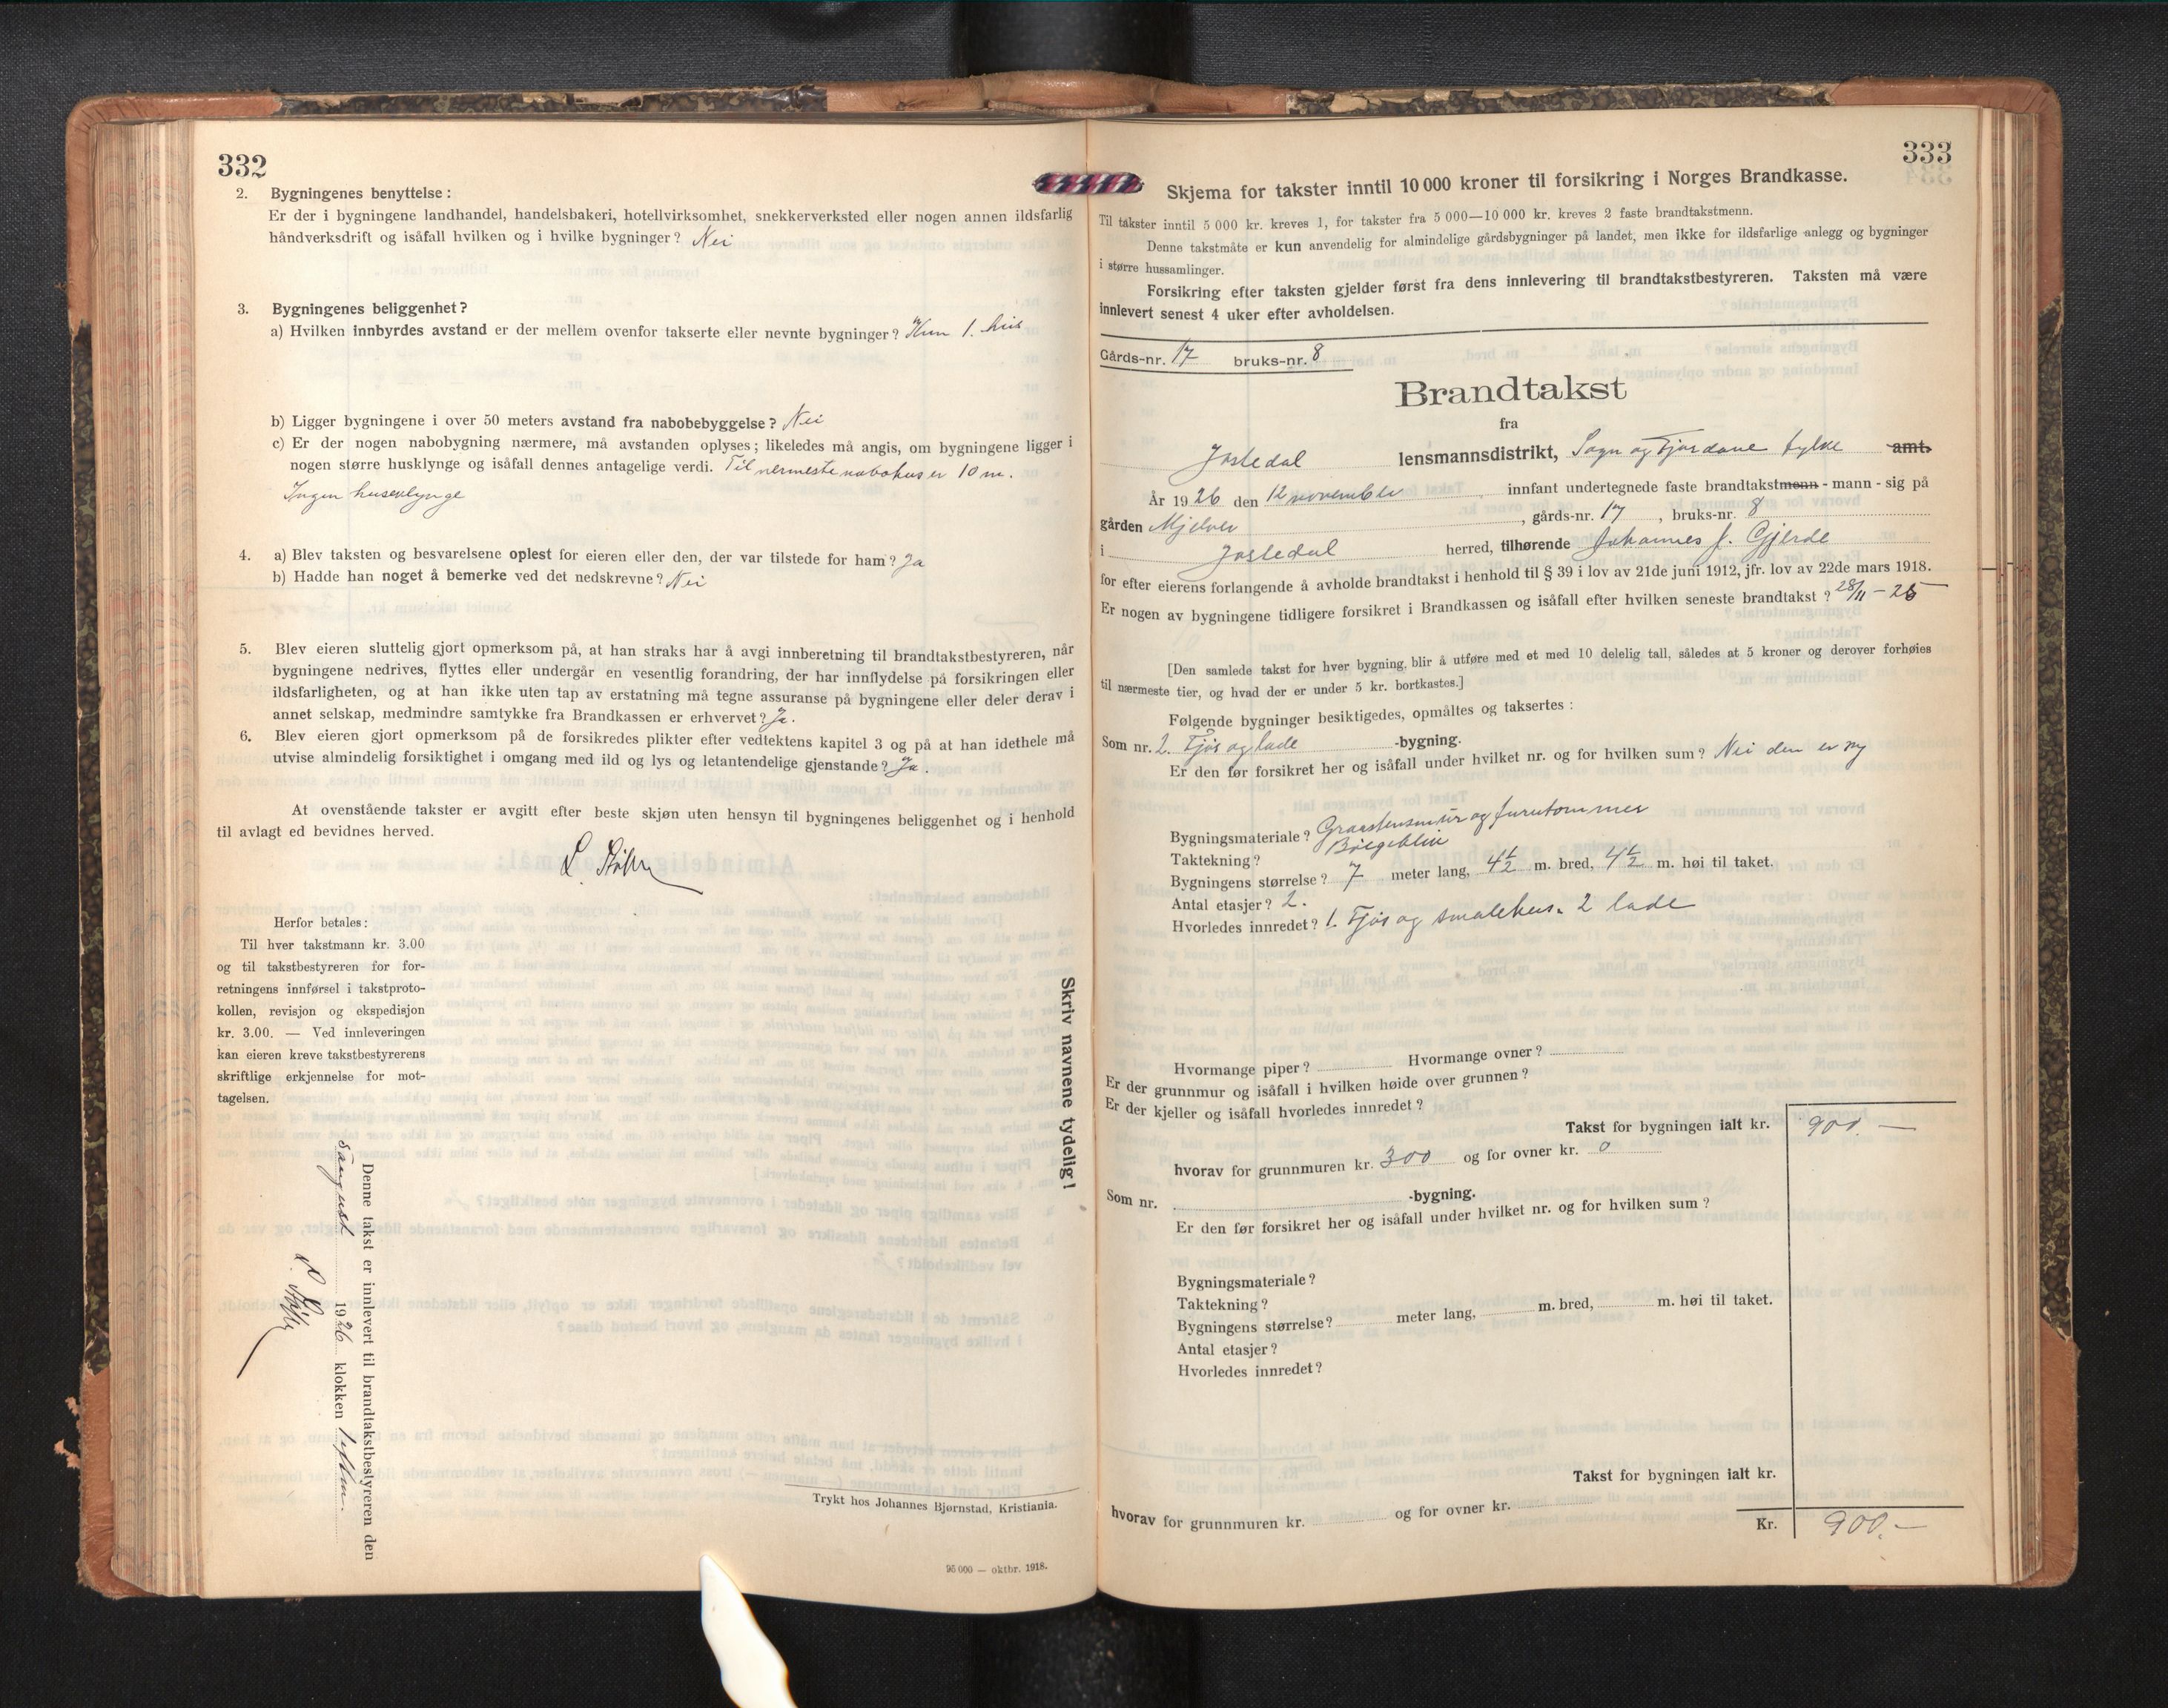 332
2. Bygningenes benyttelse:
Er der i bygningene landhandel, handelsbakeri, hotellvirksomhet, snekkerverksted eller nogen annen ildsfarlig
håndverksdrift og isåfall hvilken og i hvilke bygninger? Nei
3. Bygningenes beliggenhet?
a) Hvilken innbyrdes avstand er der mellem ovenfor takserte eller nevnte bygninger? Kun 1. hus
b) Ligger bygningene i over 50 meters avstand fra nabobebyggelse? Nei
c) Er der nogen nabobygning nærmere, må avstanden oplyses; likeledes må angis, om bygningene ligger i
nogen større husklynge og isåfall dennes antagelige verdi. Til nermeste nabohus er 10 m.
Ingen huseklynge
4. a) Blev taksten og besvarelsene oplest for eieren eller den, der var tilstede for ham? Ja
b) Hadde han noget å bemerke ved det nedskrevne? Nei
5. Blev eieren sluttelig gjort opmerksom på, at han straks har å avgi innberetning til brandtakstbestyreren, når
bygningene nedrives, flyttes eller undergår en vesentlig forandring, der har innflydelse på forsikringen eller
ildsfarligheten, og at han ikke uten tap av erstatning må tegne assuranse på bygningene eller deler derav i
annet selskap, medmindre samtykke fra Brandkassen er erhvervet? Ja.
6. Blev eieren gjort opmerksom på de forsikredes plikter efter vedtektens kapitel 3 og på at han idethele må
utvise almindelig forsiktighet i omgang med ild og lys og letantendelige gjenstande? Ja.
At ovenstående takster er avgitt efter beste skjøn uten hensyn til bygningenes beliggenhet og i henhold
til avlagt ed bevidnes herved.
Herfor betales:
Til hver takstmann kr. 3.00
og til takstbestyreren for for-
retningens innførsel i takstproto-
kollen, revisjon og ekspedisjon
kr. 3.00. — Ved innleveringen
kan eieren kreve takstbestyrerens
skriftlige erkjennelse for mot-
tagelsen.
Skriv navnene tydelig!
Denne takst er innlevert til brandtakstbestyreren den
1926 klokken
Trykt hos Johannes Bjørnstad, Kristiania.
95 000 — oktbr. 1918.
333
Skjema for takster inntil 10 000 kroner til forsikring i Norges Brandkasse.
Til takster inntil 5 000 kr. kreves 1, for takster fra 5 000—10 000 kr. kreves 2 faste brandtakstmenn.
Denne takstmåte er kun anvendelig for almindelige gårdsbygninger på landet, men ikke for ildsfarlige anlegg og bygninger
i større hussamlinger.
Forsikring efter taksten gjelder først fra dens innlevering til brandtakstbestyreren. Taksten må være
innlevert senest 4 uker efter avholdelsen.
Gårds-nr. 17 bruks-nr. 8
Brandtakst
fra
Jostedal lensmannsdistrikt, Sogn og Fjordane fylke amt.
År 1926 den 12 november innfant undertegnede faste brandtakstmenn - mann - sig på
gården Mjelver, gårds-nr. 17, bruks-nr. 8
i Jostedal herred, tilhørende Johannes J. Gjerde
for efter eierens forlangende å avholde brandtakst i henhold til § 39 i lov av 21de juni 1912, jfr. lov av 22de mars 1918.
Er nogen av bygningene tidligere forsikret i Brandkassen og isåfall efter hvilken seneste brandtakst? 28/11 - 25
[Den samlede takst for hver bygning, blir å utføre med et med 10 delelig tall, således at 5 kroner og derover forhøies
til nærmeste tier, og hvad der er under 5 kr. bortkastes.]
Følgende bygninger besiktigedes, opmåltes og taksertes:
Som nr. 2. Fjøs og lade -bygning.
Er den før forsikret her og isåfall under hvilket nr. og for hvilken sum? Nei den er ny
Bygningsmateriale? Graastensmur og furutømmer
Taktekning? Bølgeblikk
Bygningens størrelse? 7 meter lang, 4½ m. bred, 4½ m. høi til taket.
Antal etasjer? 2.
Hvorledes innredet? 1. Fjøs og smalehus. 2 lade
Hvormange piper? Hvormange ovner?
Er der grunnmur og isåfall i hvilken høide over grunnen?
Er der kjeller og isåfall hvorledes innredet?
Takst for bygningen ialt kr. 900. —
hvorav for grunnmuren kr. 300 og for ovner kr. 0
Som nr. -bygning.
Er den før forsikret her og isåfall under hvilket nr. og for hvilken sum?
Bygningsmateriale?
Taktekning?
Bygningens størrelse? meter lang, m. bred, m. høi til taket.
Antal etasjer?
Hvorledes innredet?
Takst for bygningen ialt kr.
hvorav for grunnmuren kr. og for ovner kr.
Kr. 900. —